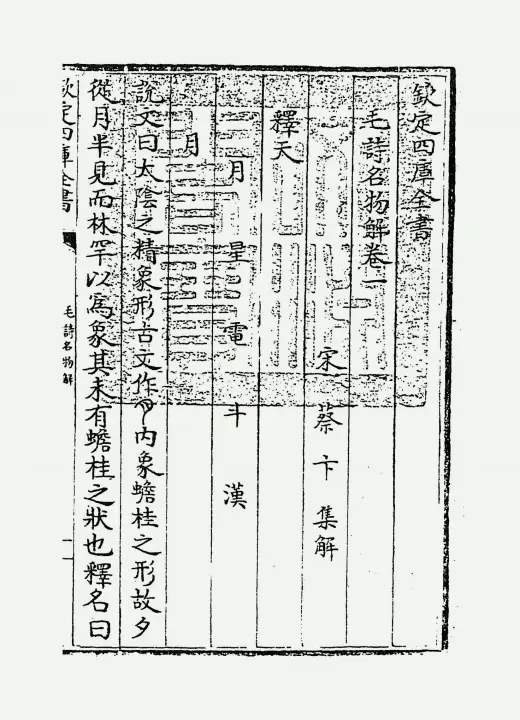 欽定四庫全書
毛詩名物解卷一
宋 蔡卞 集解
釋天
月 星 電 斗 漢
月
說文曰太陰之精象形古文作 內象蟾桂之形故夕
從月半見而林罕以為象其未有蟾桂之狀也釋名曰
欽定四庫全書
毛詩名物解
一